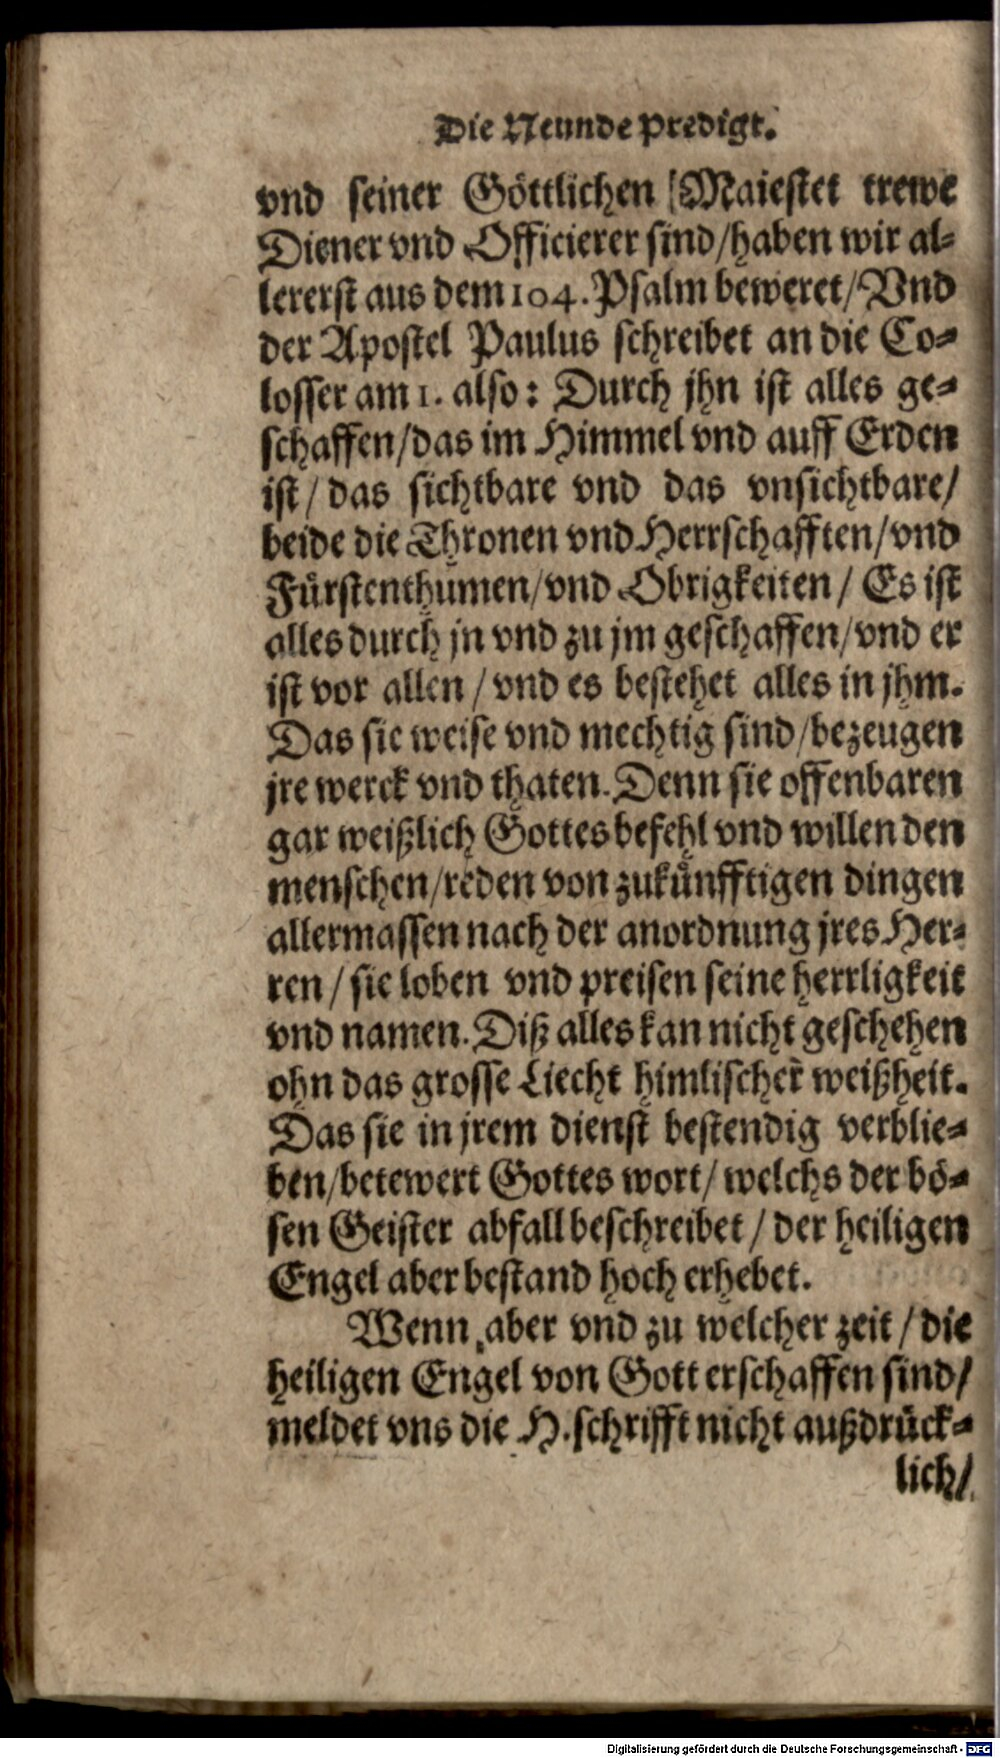 Die Neunde Predigt.
vnd seiner Göttlichen Maiestet trewe
Diener vnd Officierer sind/haben wir al-
lererst aus dem 104. Psalm beweret/Vnd
der Apostel Paulus schreibet an die Co-
losser am 1. also: Durch jhn ist alles ge-
schaffen/das im Himmel vnd auff Erden
ist/das sichtbare vnd das vnsichtbare/
beide die Thronen vnd Herrschafften/vnd
Fürstenthümen/vnd Obrigkeiten/ Es ist
alles durch jn vnd zu jm geschaffen/vnd er
ist vor allen/vnd es bestehet alles in jhm.
Das sie weise vnd mechtig sind/bezeugen
jre werck vnd thaten. Denn sie offenbaren
gar weißlich Gottes befehl vnd willen den
menschen/reden von zukünfftigen dingen
allermassen nach der anordnung jres Her-
ren/sie loben vnd preisen seine herrligkeit
vnd namen. Diß alles kan nicht geschehen
ohn das grosse Liecht himlischer weißheit.
Das sie in jrem dienst bestendig verblie-
ben/betewert Gottes wort/welchs der bö-
sen Geister abfall beschreibet/der heiligen
Engel aber bestand hoch erhebet.
Wenn aber vnd zu welcher zeit/die
heiligen Engel von Gott erschaffen sind/
meldet vns die H. schrifft nicht außdrück-
lich/
Digitalisierung gefördert durch die Deutsche Forschungsgemeinschaft - DFG